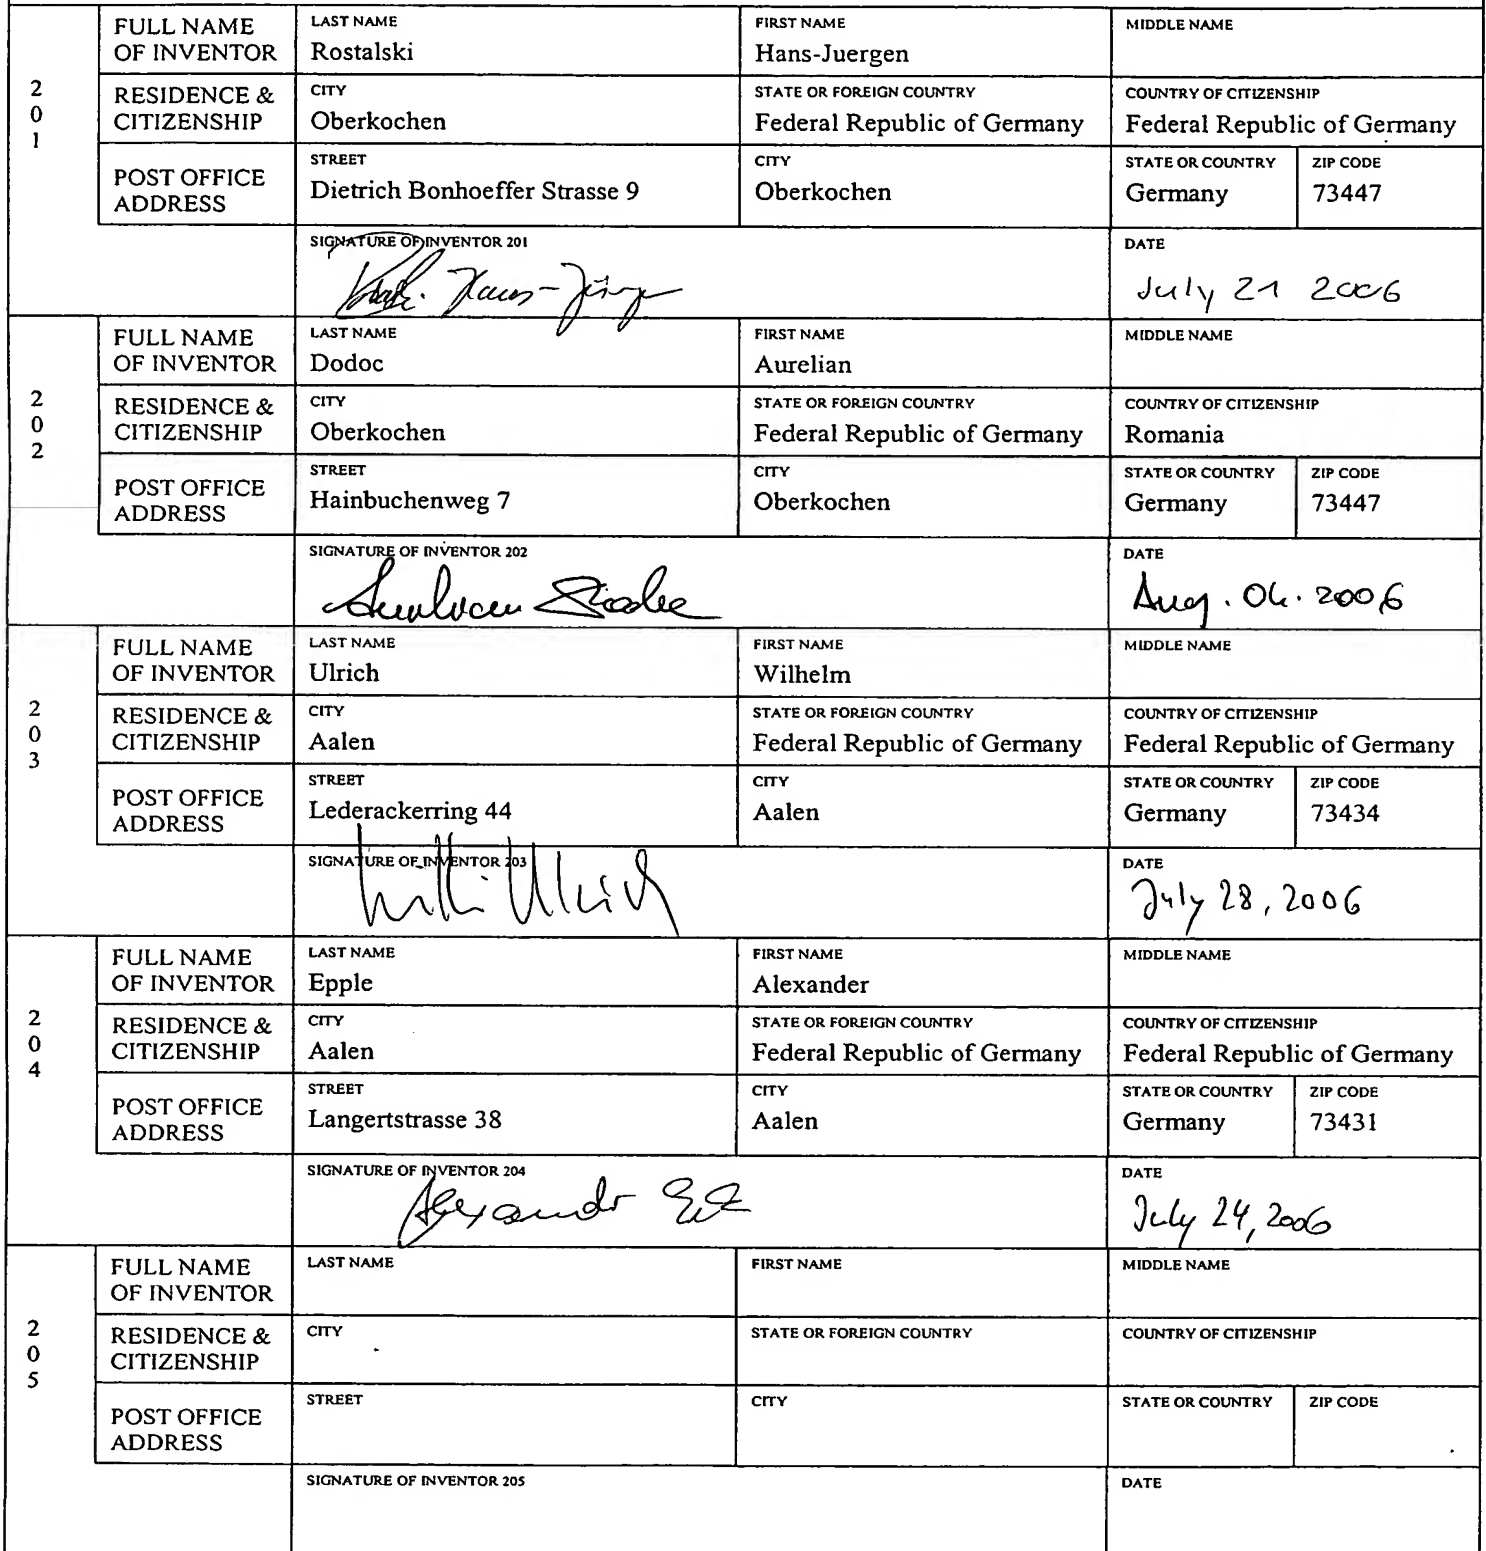 FULL NAME OF INVENTOR
LAST NAME
Rostalski
FIRST NAME
Hans-Juergen
MIDDLE NAME
201
RESIDENCE & CITIZENSHIP
CITY
Oberkochen
STATE OR FOREIGN COUNTRY
Federal Republic of Germany
COUNTRY OF CITIZENSHIP
Federal Republic of Germany
POST OFFICE ADDRESS
STREET
Dietrich Bonhoeffer Strasse 9
CITY
Oberkochen
STATE OR COUNTRY
Germany
ZIP CODE
73447
SIGNATURE OF INVENTOR 201
Hans-Jürgen
DATE
July 21 2006
FULL NAME OF INVENTOR
LAST NAME
Dodoc
FIRST NAME
Aurelian
MIDDLE NAME
202
RESIDENCE & CITIZENSHIP
CITY
Oberkochen
STATE OR FOREIGN COUNTRY
Federal Republic of Germany
COUNTRY OF CITIZENSHIP
Romania
POST OFFICE ADDRESS
STREET
Hainbuchenweg 7
CITY
Oberkochen
STATE OR COUNTRY
Germany
ZIP CODE
73447
SIGNATURE OF INVENTOR 202
DATE
Aug. 04. 2006
FULL NAME OF INVENTOR
LAST NAME
Ulrich
FIRST NAME
Wilhelm
MIDDLE NAME
203
RESIDENCE & CITIZENSHIP
CITY
Aalen
STATE OR FOREIGN COUNTRY
Federal Republic of Germany
COUNTRY OF CITIZENSHIP
Federal Republic of Germany
POST OFFICE ADDRESS
STREET
Lederackerring 44
CITY
Aalen
STATE OR COUNTRY
Germany
ZIP CODE
73434
SIGNATURE OF INVENTOR 203
Willi Ulrich
DATE
July 28, 2006
FULL NAME OF INVENTOR
LAST NAME
Epple
FIRST NAME
Alexander
MIDDLE NAME
204
RESIDENCE & CITIZENSHIP
CITY
Aalen
STATE OR FOREIGN COUNTRY
Federal Republic of Germany
COUNTRY OF CITIZENSHIP
Federal Republic of Germany
POST OFFICE ADDRESS
STREET
Langertstrasse 38
CITY
Aalen
STATE OR COUNTRY
Germany
ZIP CODE
73431
SIGNATURE OF INVENTOR 204
DATE
July 24, 2006
FULL NAME OF INVENTOR
LAST NAME
FIRST NAME
MIDDLE NAME
205
RESIDENCE & CITIZENSHIP
CITY
STATE OR FOREIGN COUNTRY
COUNTRY OF CITIZENSHIP
POST OFFICE ADDRESS
STREET
CITY
STATE OR COUNTRY
ZIP CODE
SIGNATURE OF INVENTOR 205
DATE